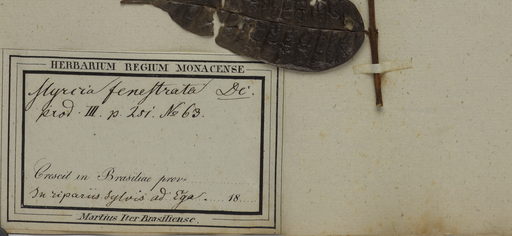 HERBARIUM REGIUM MONACENSE
Myrcia fenestrata DC.
prod. III. p. 251. No 63.
Crescit in Brasiliae prov.
In ripariis sylvis ad Ega ..... 18....
Martius Iter Brasiliense.